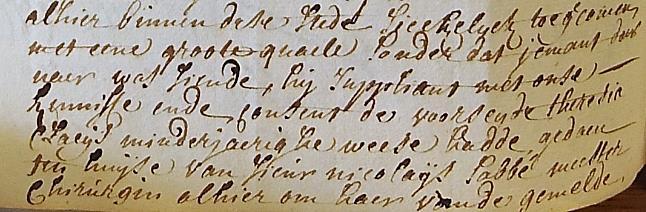 alhier binnen dese stede sieckelyck toegecomen
met eene groote quaele sonder dat jemant daer
naer was siende, hij suppliant met onse
kennisse ende consent de voorseyde theresia
Claeijs minderjaerighe weese hadde gedaen
ten huijse van sieur nicolaijs Labbé meester
Chirurgin alhier om haer van de gemelde